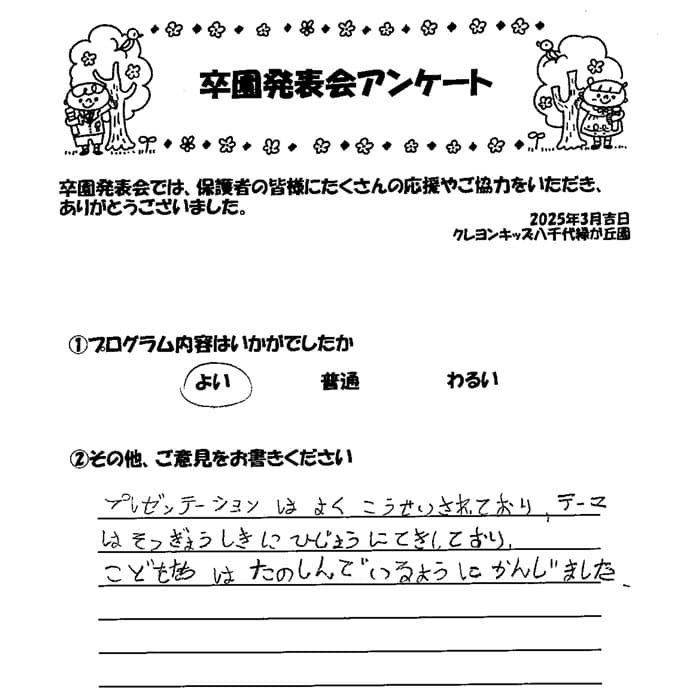 卒園発表会アンケート
卒園発表会では、保護者の皆様にたくさんの応援やご協力をいただき、
ありがとうございました。
2025年3月吉日
クレヨンキッズ八千代緑が丘園
①プログラム内容はいかがでしたか
よい 普通 わるい
②その他、ご意見をお書きください
プレゼンテーション は よく こうせいされており、テーマ
は そつぎょうしきに ひじょうに てきしており、
こども達 は たのしんでいるように かんじました。